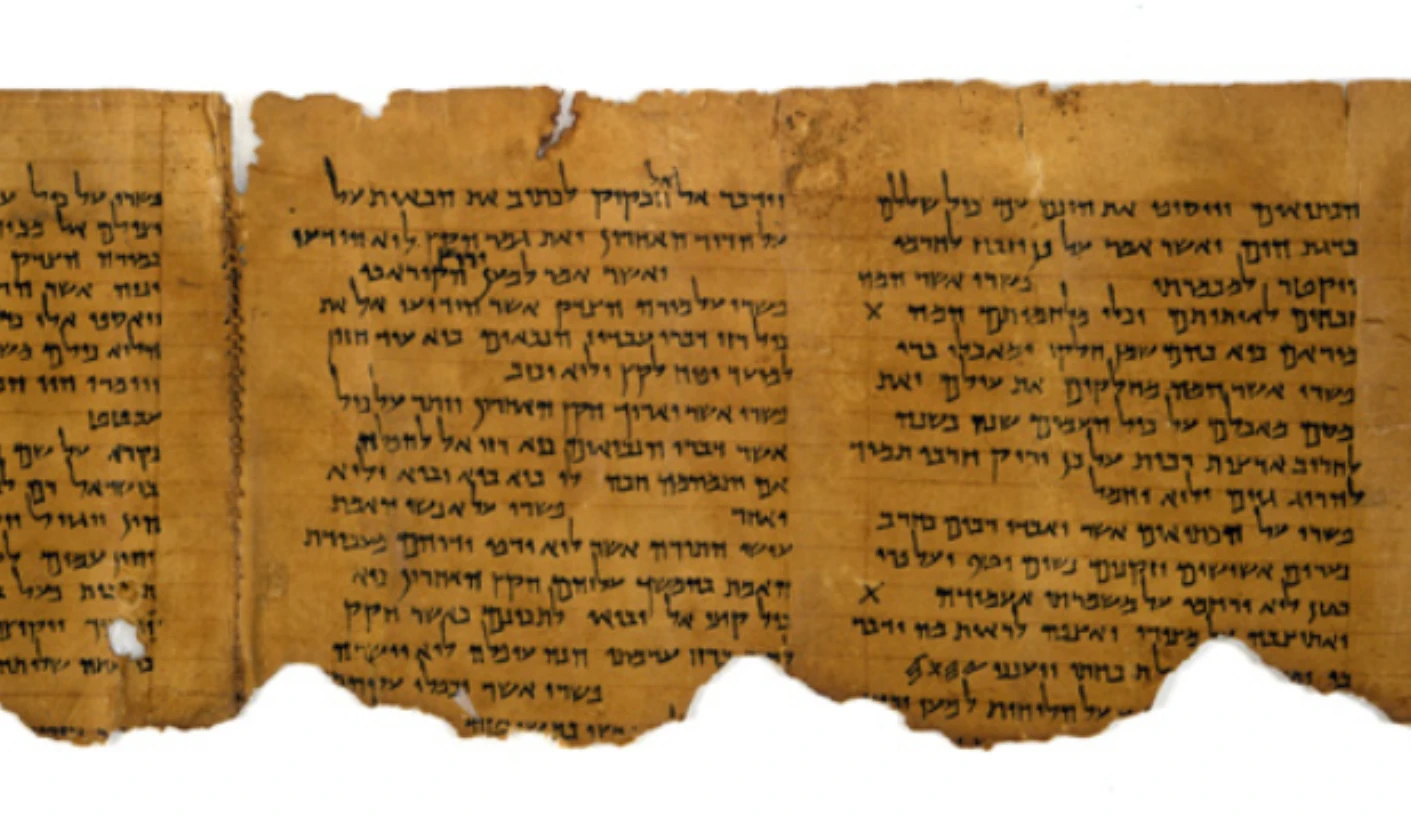 הכתיאים ויוסיפו את הונם עם כול שללם
כדגת הים ואשר אמר על כן יזבח לחרמו
ויקטר למכמרתו פשרו אשר המה
זבחים לאותותם וכלי מלחמותם המה X
מוראם כיא בהם שמן חלקו ומאכלו ברי
פשרו אשר המה מחלקים את עולם ואת
מסם מאכלם על כול העמים שנה בשנה
לחריב ארצות רבות על כן יריק חרבו תמיד
להרוג גוים ולוא יחמל
פשרו על הכתיאים אשר יאבדו רבים בחרב
נערים אשישים וזקנים נשים וטף ועל פרי
בטן לוא ירחמו על משמרתי אעמודה X
ואתיצבה על מצורי ואצפה לראות מה ידבר
בי תוכחתי ויענני 𐤉𐤄𐤅𐤄
על הלוחות למען
וידבר אל אל חבקוק לכתוב את הבאות על
על הדור האחרון ואת גמר הקץ לוא הודעו
ואשר אמר למען ירוץ הקורא בו
פשרו על מורה הצדק אשר הודיעו אל את
כול רזי דברי עבדיו הנבאים כיא עוד חזון
למועד יפיח לקץ ולוא יכזב
פשרו אשר יארוך הקץ האחרון ויתר על כול
אשר דברו הנביאים כיא רזי אל להפלה
אם יתמהמה חכה לו כיא בוא יבוא ולוא
יאחר פשרו על אנשי האמת
עושי התורה אשר לוא ירפו ידיהם מעבודת
האמת בהמשך עליהם הקץ האחרון כיא
כול קיצי אל יבואו לתכונם כאשר חקק
ברזי ערמתו הנה עופלה לוא יושרה
פשרו אשר יכפלו עליהם
פשרו על כול
יצילם אל
במורה הצדק
ינוה אשר
ויאספו אלו
הלוא כולם
ויומרו הוי
עבטט
נקרא על שם
בישראל רם
הון ויגזול
והון עמים
פעל
יקומו
אתה שלותה